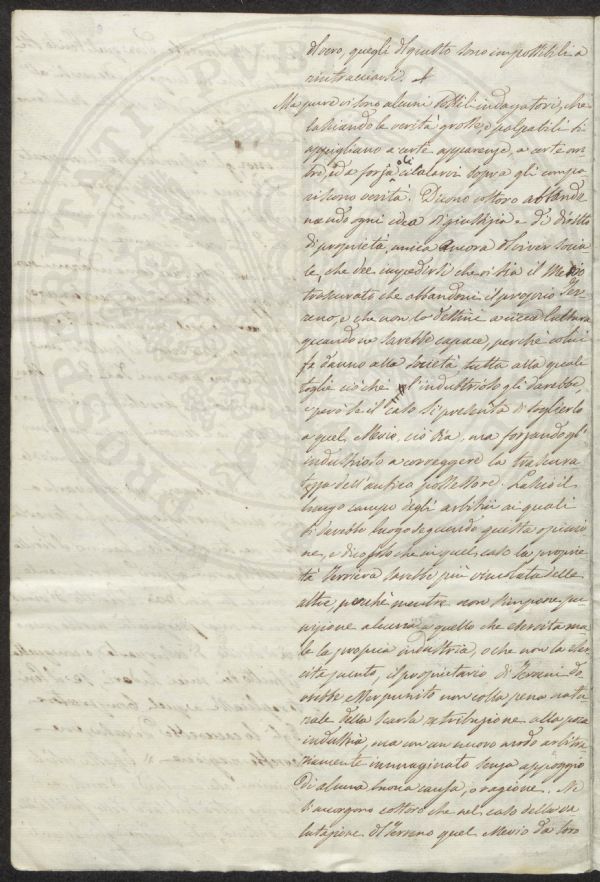 di vero, quegli di giusto sono impossibili a
rintracciarsi. +
Ma pure vi sono alcuni sottili indagatori, che
lasciando le verità grosse, e palpabili si
appigliano a certe apparenze, a certe om
bre, ed a forza di citalarvi sopra gli compa
riscono verità. Dicono costoro abbando
nando ogni idea di giustizia e di diritto
di proprietà, unica ancora di viver socia
le, che dee impedirsi che vi sia il Mevio
trascurato che abbandoni il proprio Ter
reno, e che non lo destini a ricca cultura
quando ne sarebbe capace, perchè costui
fa danno alla società tutta alla quale
toglie ciò che l'industrioso gli darebbe,
e però se il caso si presenta di toglierlo
a quel Mevio, ciò sia, ma forzando gl'
industrioso a correggere la trascura
tezza dell'antico possessore. Lascio il
lungo campo degli arbitrii ai quali
si darebbe luogo seguendo questa opinio
ne, e dico solo che in quel caso la proprie
tà Terriera sarebbe più vincolata delle
altre, perchè mentre non s'impone pu
nizione alcuna a quello che esercita ma
le la propria industria, o che non la eser
cita punto, il proprietario di Terreni do
vrebbe esser punito non colla pena natu
rale della scarsa retribuzione alla poca
industria, ma con un nuovo modo arbitra
riamente immaginato senza appoggio
di alcuna buona causa, o ragione. Nè
si accorgono costoro che nel caso della va
lutazione di Terreno quel Mevio da loro